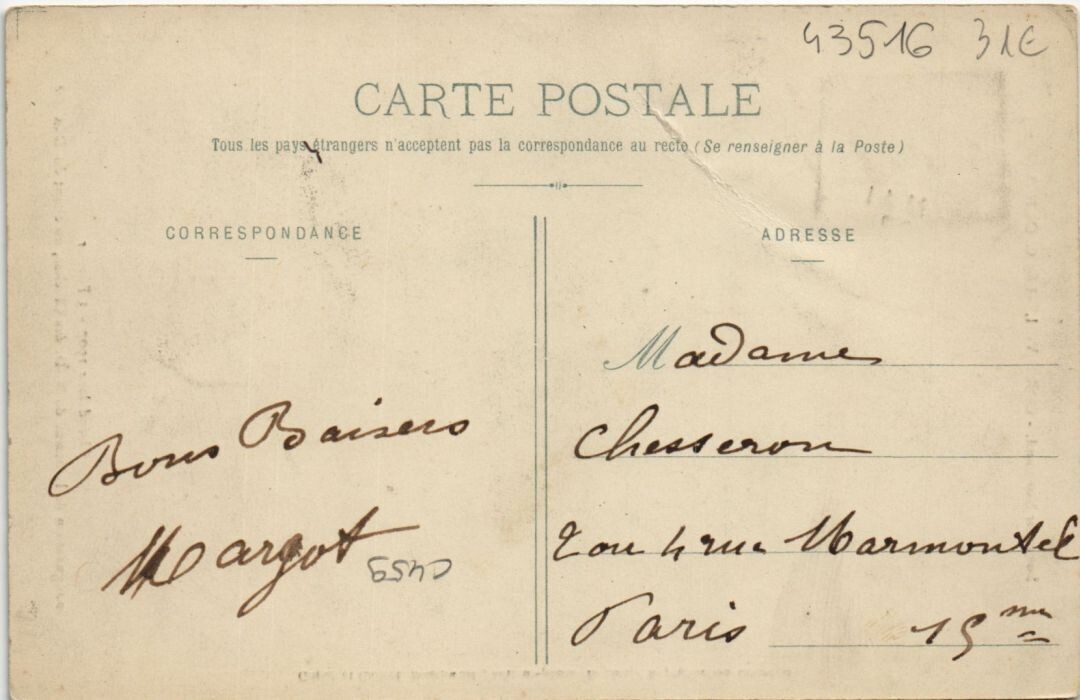 43516 31€
CARTE POSTALE
Tous les pays étrangers n'acceptent pas la correspondance au recto (Se renseigner à la Poste)
CORRESPONDANCE
Bons Baisers
Margot
ADRESSE
Madame
Chesseron
2 ou 4 rue Marmontel
Paris 15me